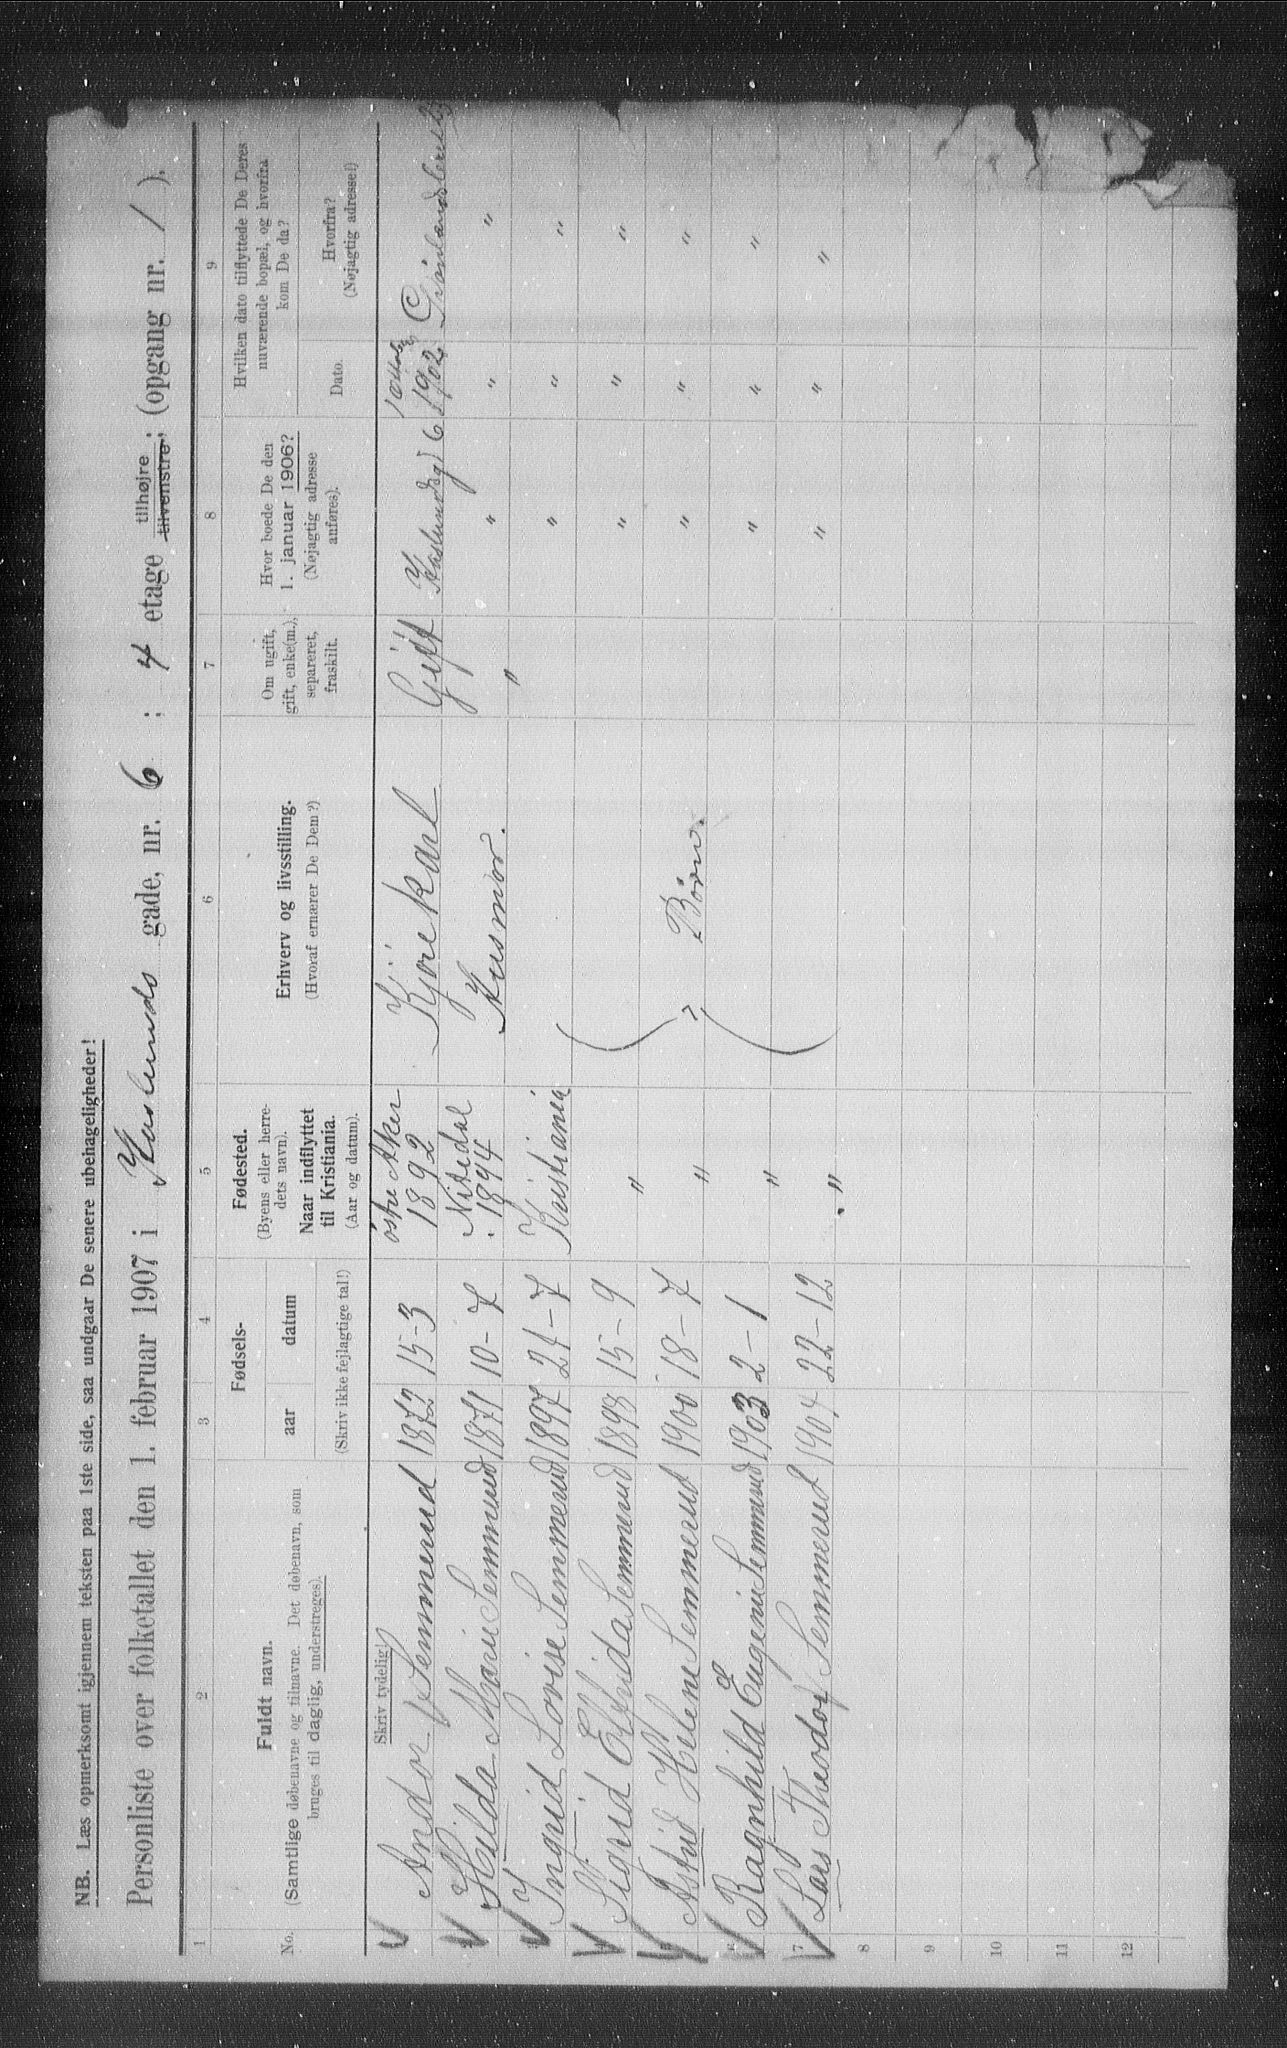 NB. Læs opmerksomt igjennem teksten paa 1ste side, saa undgaar De senere ubehageligheder!
Personliste over folketallet den 1. februar 1907 i Haslunds gade, nr. 6 : 4 etage tilhøjre tilvenstre; (opgang nr. 1 ).
1 2 3 4 5 6 7 8 9
No.
Fuldt navn.
(Samtlige døbenavne og tilnavne. Det døbenavn, som
bruges til daglig, understreges).
Skriv tydelig!
Fødsels-
aar datum
(Skriv ikke fejlagtige tal!)
Fødested.
(Byens eller herre-
dets navn).
Naar indflyttet
til Kristiania.
(Aar og datum).
Erhverv og livsstilling.
(Hvoraf ernærer De Dem?)
Om ugift,
gift, enke(m.),
separeret,
fraskilt.
Hvor boede De den
1. januar 1906?
(Nøjagtig adresse
anføres).
Hvilken dato tilflyttede De Deres
nuværende bopæl, og hvorfra
kom De da?
Dato.
Hvorfra?
(Nøjagtig adresse!)
Andor Semmerud 1872 15-3 östre Aker 1892 Kjörekarl Gift Haslundsg 6 1902
Hilda Marie Semmerud 1871 10-7 Nitedal 1894 Husmor. " " " "
Ingrid Lovise Semmerud 1897 21-7 Kristiania " " "
Sigrid Elfrida Semmerud 1898 15-9 " " " "
Astrid Helene Semmerud 1900 18-7 " Börn. " " "
6 Ragnhild Eugenie Semmerud 1903 2-1 " " " "
7 Lars Theodor Semmerud 1904 22-12 " " " "
8
9
10
11
12